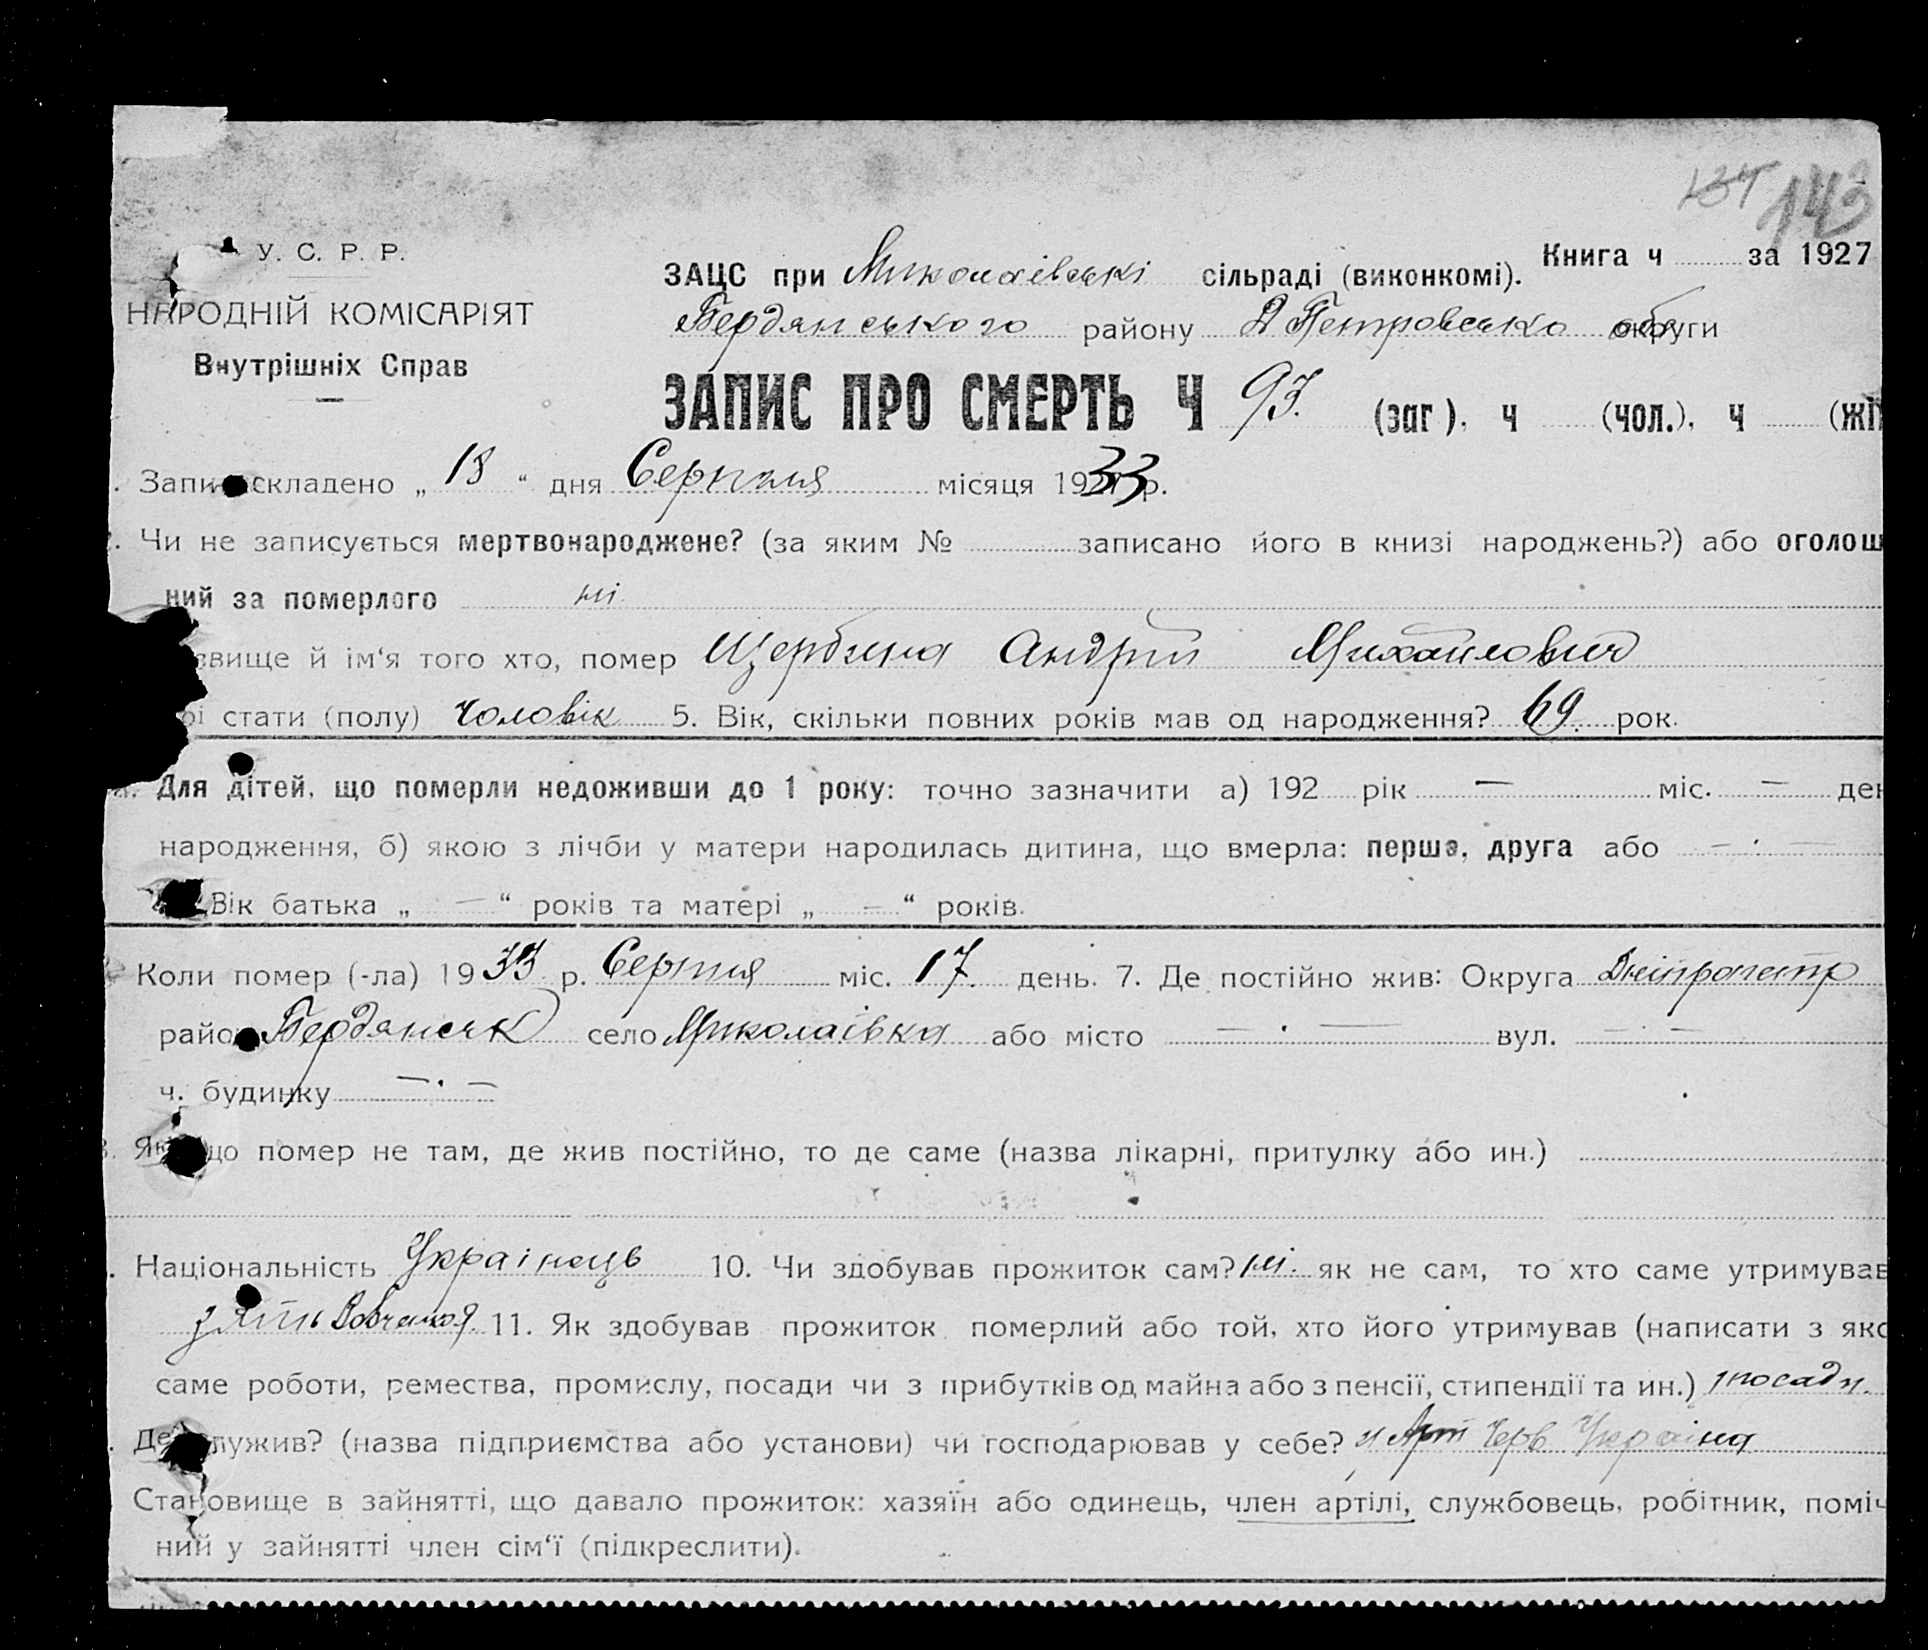 134 143
У. С. Р. Р.
НАРОДНІЙ КОМІСАРІЯТ
Внутрішніх Справ
Книга ч за 1927
ЗАЦС при Миколаївські сільраді (виконкомі).
Бердянського району Д Петровська округи
ЗАПИС ПРО СМЕРТЬ Ч 93. (заг). ч (чол.), ч (жі
Запис складено „ 18 “ дня Серпня місяця 1933 р.
Чи не записується мертвонароджене? (за яким № записано його в книзі народжень?) або оголош
ний за померлого ні
звище й ім‘я того хто, помер Щербина Андрій Михайлович
рі стати (полу) чоловік 5. Вік, скільки повних років мав од народження? 69. рок.
Для дітей, що померли недоживши до 1 року: точно зазначити а) 192 рік — міс. — ден
народження, б) якою з лічби у матери народилась дитина, що вмерла: перша, друга або — · —
Вік батька „ — “ років та матері „ — “ років.
Коли помер (-ла) 1933 р. Серпня міс. 17. день. 7. Де постійно жив: Округа Дніпропетр
район Бердянськ село Миколаївка або місто — · — вул. — · —
ч. будинку — · —
Якщо помер не там, де жив постійно, то де саме (назва лікарні, притулку або ин.)
Національність Українець 10. Чи здобував прожиток сам? ні. як не сам, то хто саме утримував
зять 11. Як здобував прожиток померлий або той, хто його утримував (написати з яко
саме роботи, ремества, промислу, посади чи з прибутків од майна або з пенсії, стипендії та ин.) з посади.
Де служив? (назва підприємства або установи) чи господарював у себе? у Арт Черв Україна
Становище в зайнятті, що давало прожиток: хазяїн або одинець, член артілі, службовець, робітник, поміч
ний у зайнятті член сім‘ї (підкреслити).